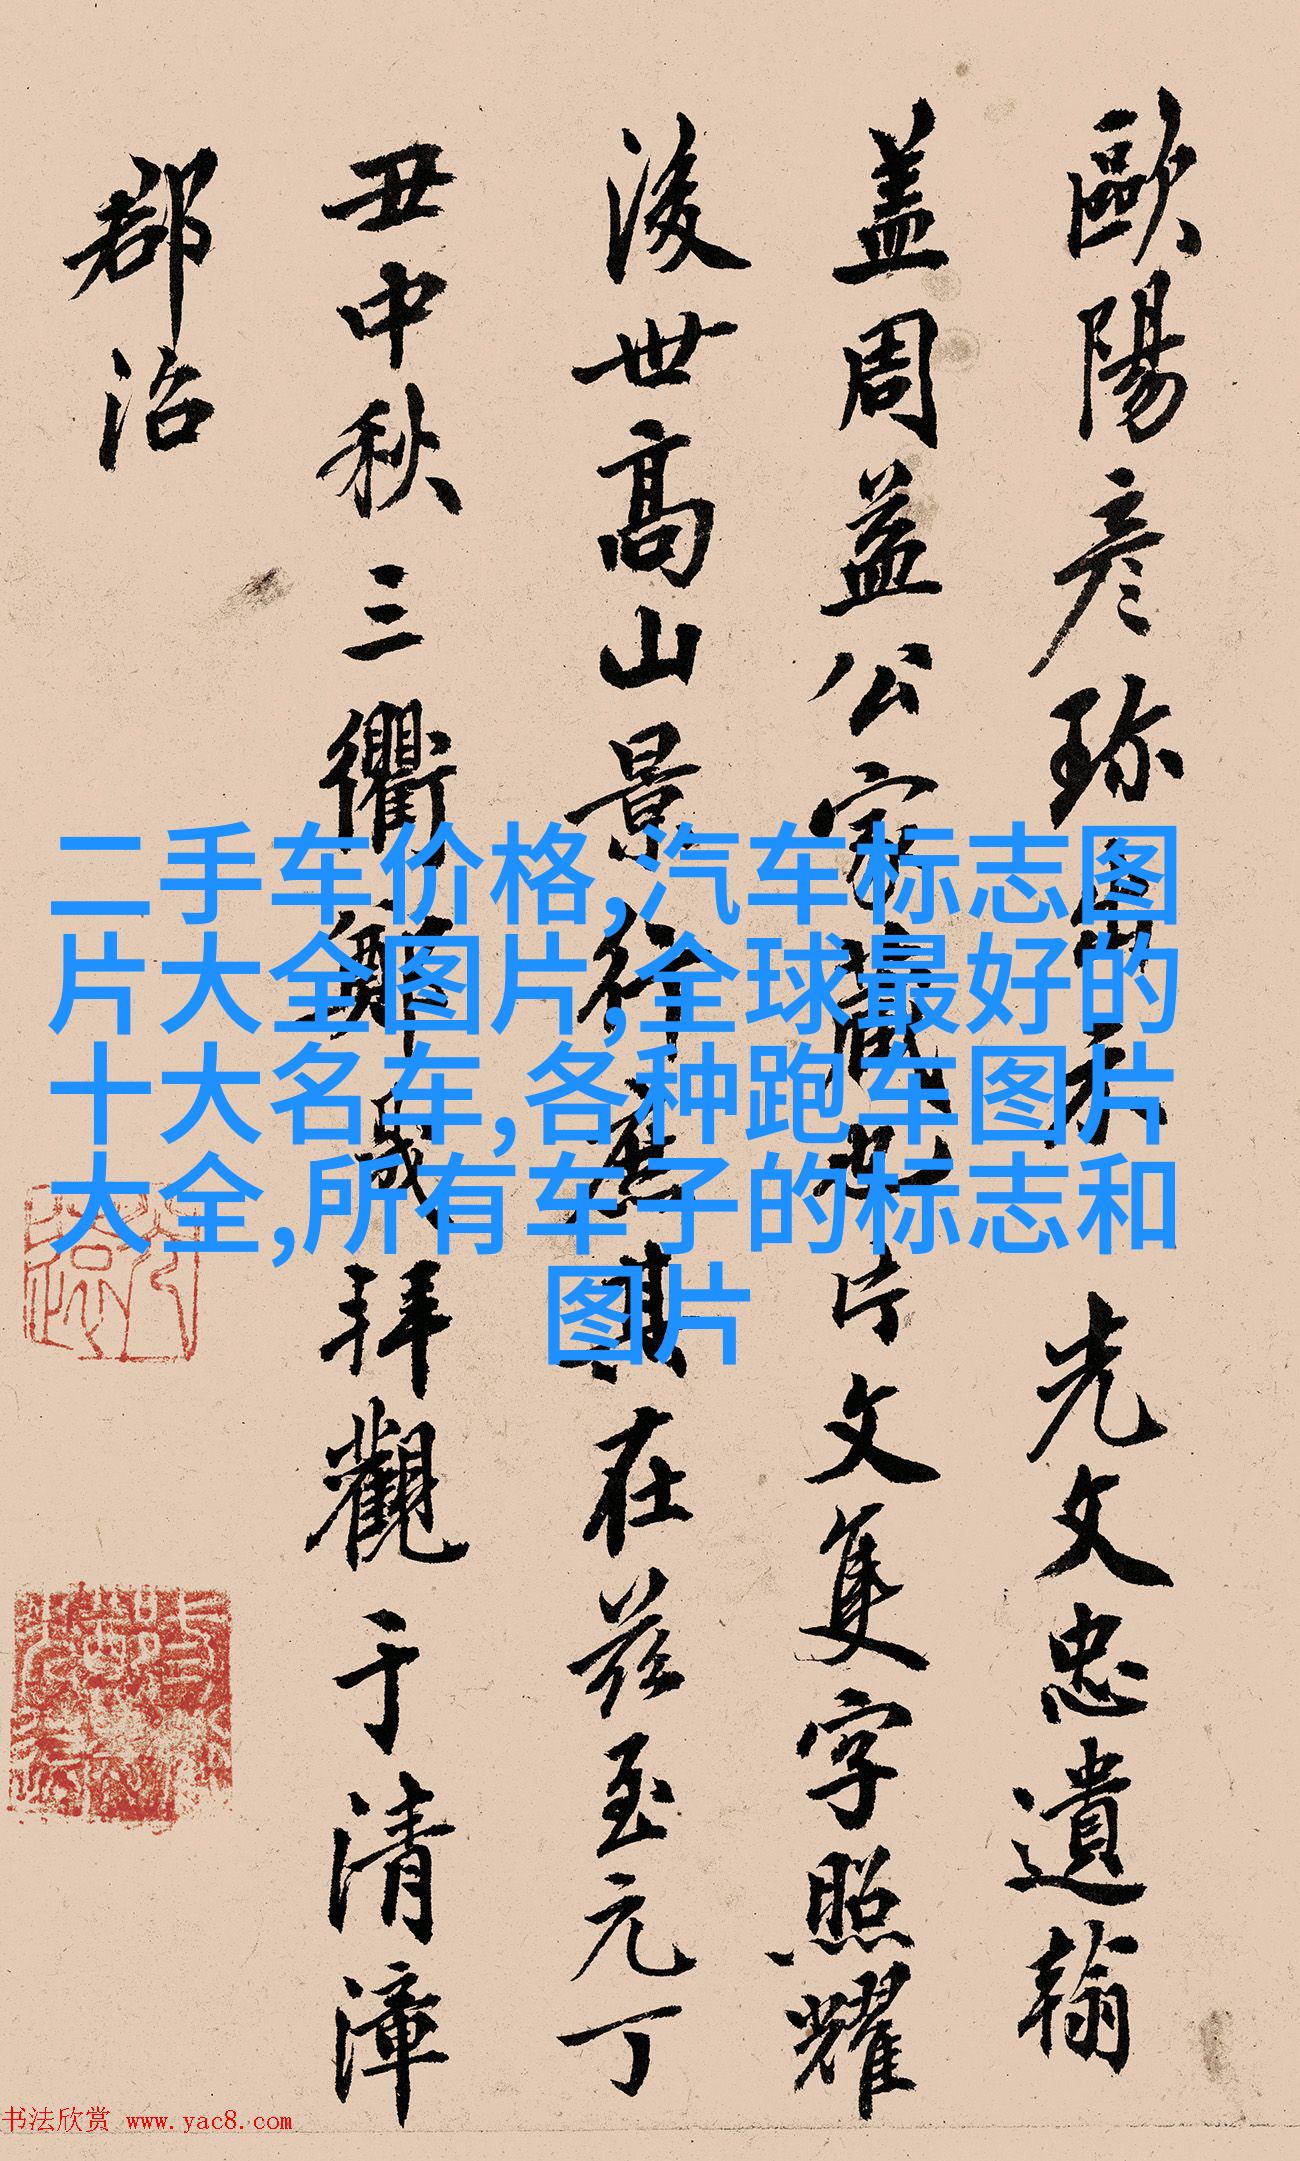 歐陽彦珍出示 光文忠遺翰
盖周益公家藏也片文隻字照耀
後世髙山景行其在兹至元丁
丑中秋三衢鄭 拜觀于清漳
郡治
二手车价格,汽车标志图
片大全图片,全球最好的
十大名车,各种跑车图片
大全,所有车子的标志和
图片
书法欣赏 www.yac8.com